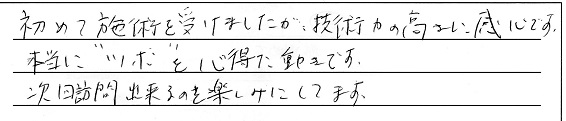 初めて施術を受けましたが、技術力の高さに感心です。
本当に"ツボ"を心得た動きです。
次回訪問出来るのを楽しみにしてます。